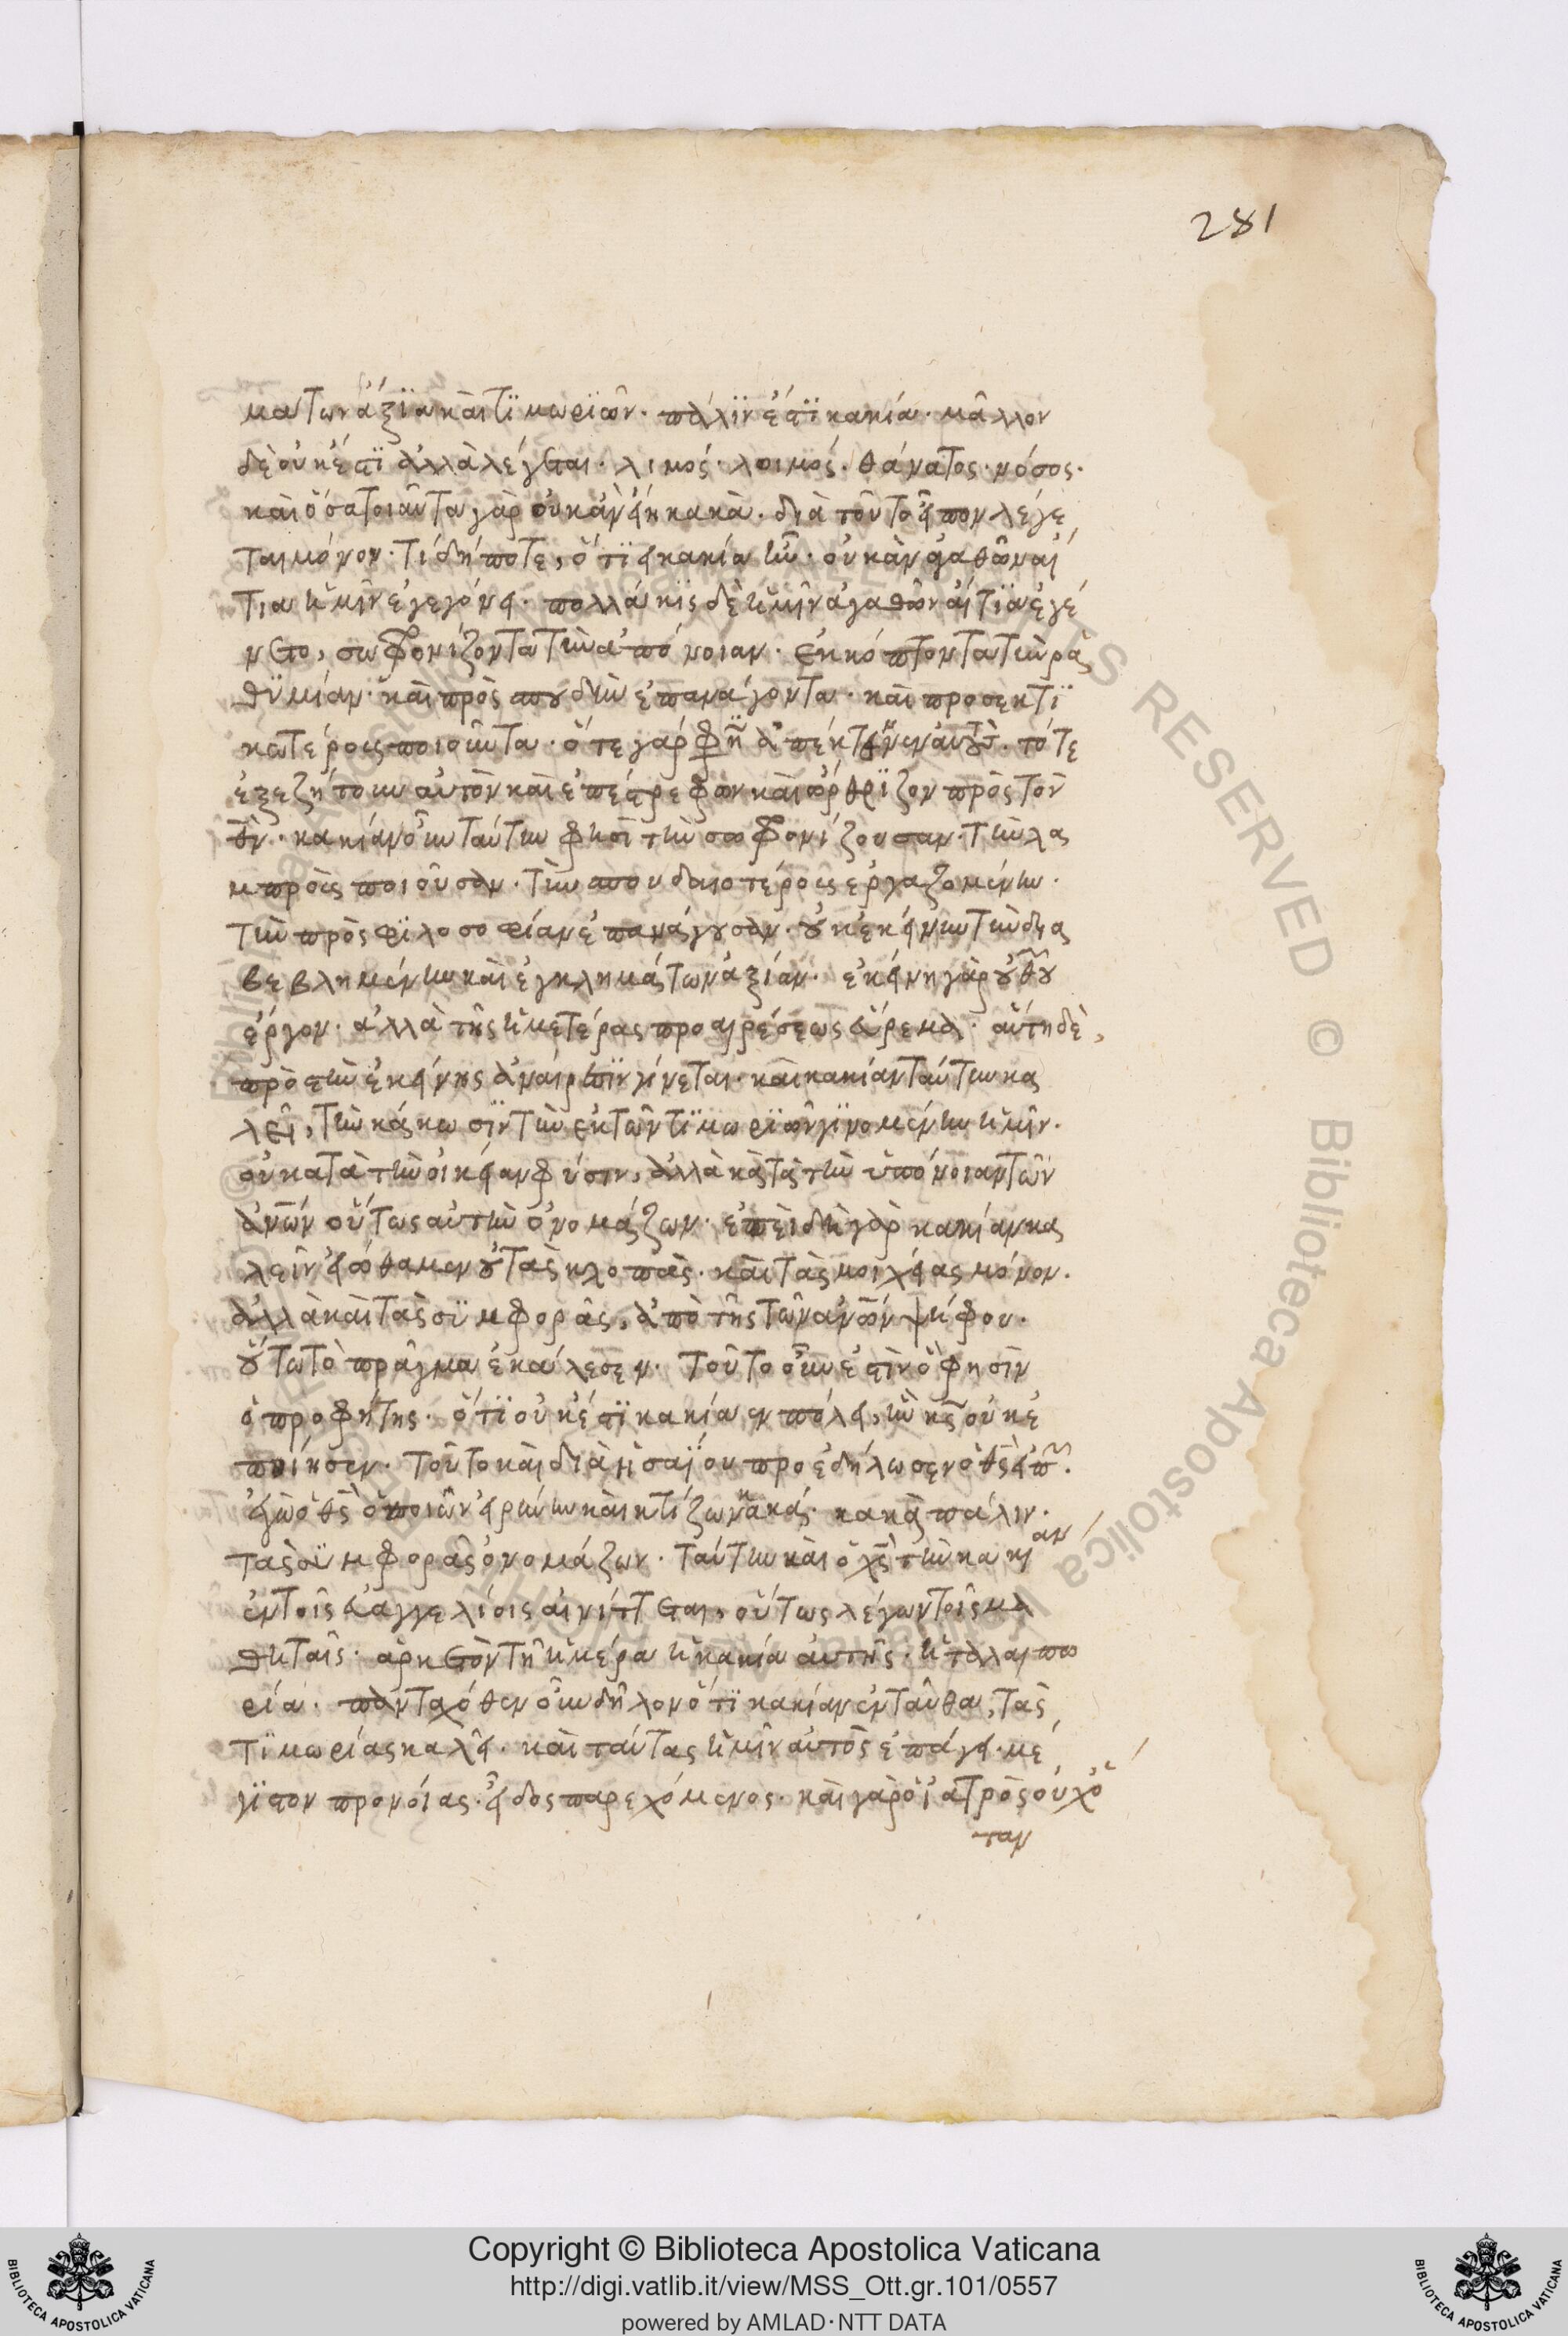 281
ματων άξϊα καὶ τϊμωρϊῶν· πάλϊν ἐστϊ κακία· μᾶλλον
δὲ οὐκέστϊ ἀλλὰ λέγεται· λιμός· λοιμός· θάνατος· νόσος·
καὶ ὅσα τοιαῦτα γὰρ οὐκ ἂν εἴη κακὰ· διὰ τοῦτο εἶπον λέγε
ται μόνον· τί δήποτε, ὅτϊ εἰ κακία ἦν· οὐκ ἂν ἀγαθῶν αἰ
τια ἡμῖν ἐγεγόνει· πολλάκϊς δὲ ἡμῖν ἀγαθῶν αἰτϊα ἐγέ
νετο, σωφρονίζοντα τὴν ἀπόνοιαν· ἐκκόπτοντα τὴν ρα
θϋμίαν· καὶ πρὸς σπουδὴν ἐπανάγοντα· καὶ προσεκτϊ
κωτέροις ποιοῦντα· ὅτε γάρ φη ἀπέκτεινεν αὐτοὺς· τότε
ἐξεζήτουν αὐτὸν καὶ ἐπέστρεφον καὶ ὤρθρϊζον πρὸς τὸν
θν· κακίαν οὖν ταύτην φησὶ τὴν σωφρονίζουσαν· τὴν λα
μπροὺς ποιοῦσαν· τὴν σπουδαιοτέροις ἐργαζομένην·
τὴν πρὸς φϊλοσοφίαν ἐπανάγουσαν· οὐκ ἐκείνην τὴν δια
βεβλημένην καὶ ἐγκλημάτων ἀξίαν· ἐκείνη γὰρ οὐ θυ
ἔργον· ἀλλὰ τῆς ἡμετέρας προαιρέσεως εὕρεμα· αὕτη δὲ,
πρὸς τὴν ἐκείνης ἀναίρεσϊν γίνεται· καὶ κακίαν ταύτην κα
λεῖ, τὴν κάκωσϊν τὴν ἐκ τῶν τϊμωρϊῶν γϊνομένην ἡμῖν·
οὐ κατὰ τὴν οἰκείαν φύσιν, ἀλλὰ κατὰ τὴν ὑπόνοιαν τῶν
ἀνων οὕτως αὐτὴν ὀνομάζων· ἐπειδὴ γὰρ κακίαν κα
λεῖν εἰώθαμεν οὐ τὰς κλοπὰς· καὶ τὰς μοιχείας μόνον·
ἀλλὰ καὶ τὰς σϋμφορᾶς, ἀπὸ τῆς τῶν ανων ψήφου·
οὕτω τὸ πρᾶγμα ἐκάλεσεν· τοῦτο οὖν ἐστὶν ὃ φησὶν
ὁ προφήτης· ὅτϊ οὐκέστϊ κακία εν πόλει, ἣν κς οὐκ ἐ
ποίησεν· τοῦτο καὶ διὰ ἡσαΐου προεδήλωσεν ὁ θς εἰπ.
ἐγὼ ὁ θς ὁ ποιῶν εἰρήνην καὶ κτίζων κακά· κακὰ πάλιν·
τὰς σϋμφορὰς ὀνομάζων· ταύτην καὶ ὁ χς τὴν κακίαν
ἐν τοῖς εὐαγγελίοις αἰνίττεται, οὕτως λέγων τοῖς μα
θηταῖς· ἀρκετὸν τῆ ἡμέρα ἡ κακία αὐτῆς· ἡ ταλαιπω
ρία· πανταχόθεν οὖν δῆλον ὅτϊ κακίαν ἐνταῦθα, τὰς
τϊμωρίας καλεῖ· καὶ ταύτας ἡμῖν αὐτὸς ἐπάγει· μέ
γϊστον προνοίας· εἶδος παρεχόμενος· καὶ γὰρ ὁ ἰατρὸς οὐχ ὅ
ταν